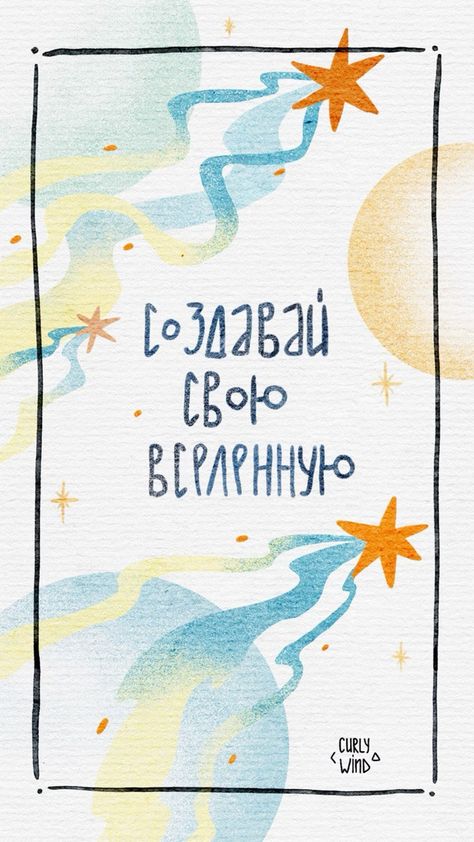 создавай
свою
вселенную
CURLY
WIND